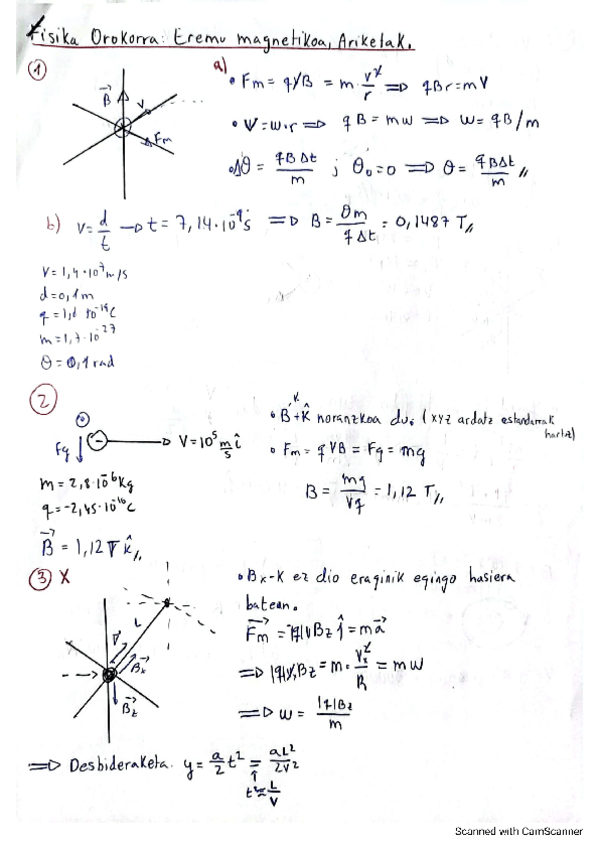 Fisika Orokorra: Eremu magnetikoa, Ariketak.
① a)
B⃗ V Fm
• Fm = qVB = m · v²/r ⇒ qBr = mV
• V = w·r ⇒ qB = mw ⇒ w = qB/m
• Δθ = qBΔt/m ; θ₀ = 0 ⇒ θ = qBΔt/m //
b) V = d/t → t = 7,14·10⁻⁹ s ⇒ B = θm/qΔt = 0,1487 T //
V = 1,4·10⁷ m/s
d = 0,1 m
q = 1,6 10⁻¹⁹ C
m = 1,7·10⁻²⁷
θ = 0,1 rad
②
Fg V = 10⁵ m/s î
m = 2,8·10⁻⁶ kg
q = -2,45·10⁻¹⁰ C
B⃗ = 1,12 T k̂ //
• B +k̂ noranzkoa du. (xyz ardatz estandarrak hartuz)
• Fm = qVB = Fg = mg
B = mg/Vq = 1,12 T //
③ X
L V⃗ B⃗x B⃗z
• Bx-k ez dio eraginik egingo hasiera
batean.
F⃗m = -|q|VBz ĵ = ma⃗
⇒ |q|V Bz = m · V²/R = mw
⇒ w = |q|Bz/m
⇒ Desbideraketa. y = a/2 t² = aL²/2V²
↑
t = L/V
Scanned with CamScanner